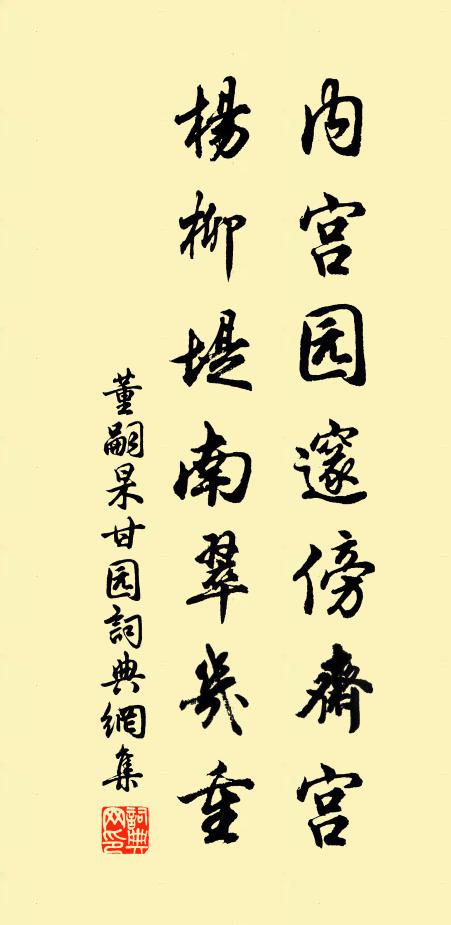 内宫园邃傍斋宫
杨柳堤南翠几重
董嗣杲甘园詞典網集
詞典网印